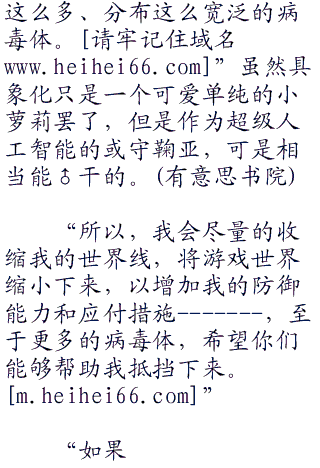 这么多、分布这么宽泛的病
毒体。[请牢记住域名
www.heihei66.com]”虽然具
象化只是一个可爱单纯的小
萝莉罢了，但是作为超级人
工智能的或守鞠亚，可是相
当能♂干的。(有意思书院)
“所以，我会尽量的收
缩我的世界线，将游戏世界
缩小下来，以增加我的防御
能力和应付措施-------，至
于更多的病毒体，希望你们
能够帮助我抵挡下来。
[m.heihei66.com]”
“如果